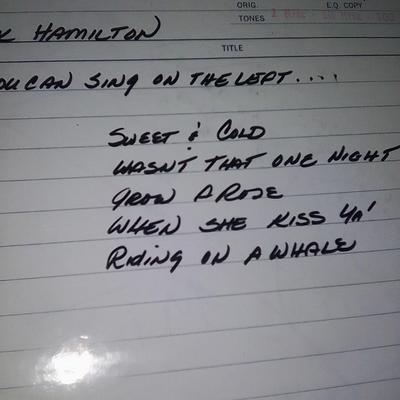 ORIG. E.Q. COPY
TONES
HAMILTON
TITLE
CAN SING ON THE LEFT....
SWEET & COLD
WASNT THAT ONE NIGHT
GROW A ROSE
WHEN SHE KISS YA'
RIDING ON A WHALE